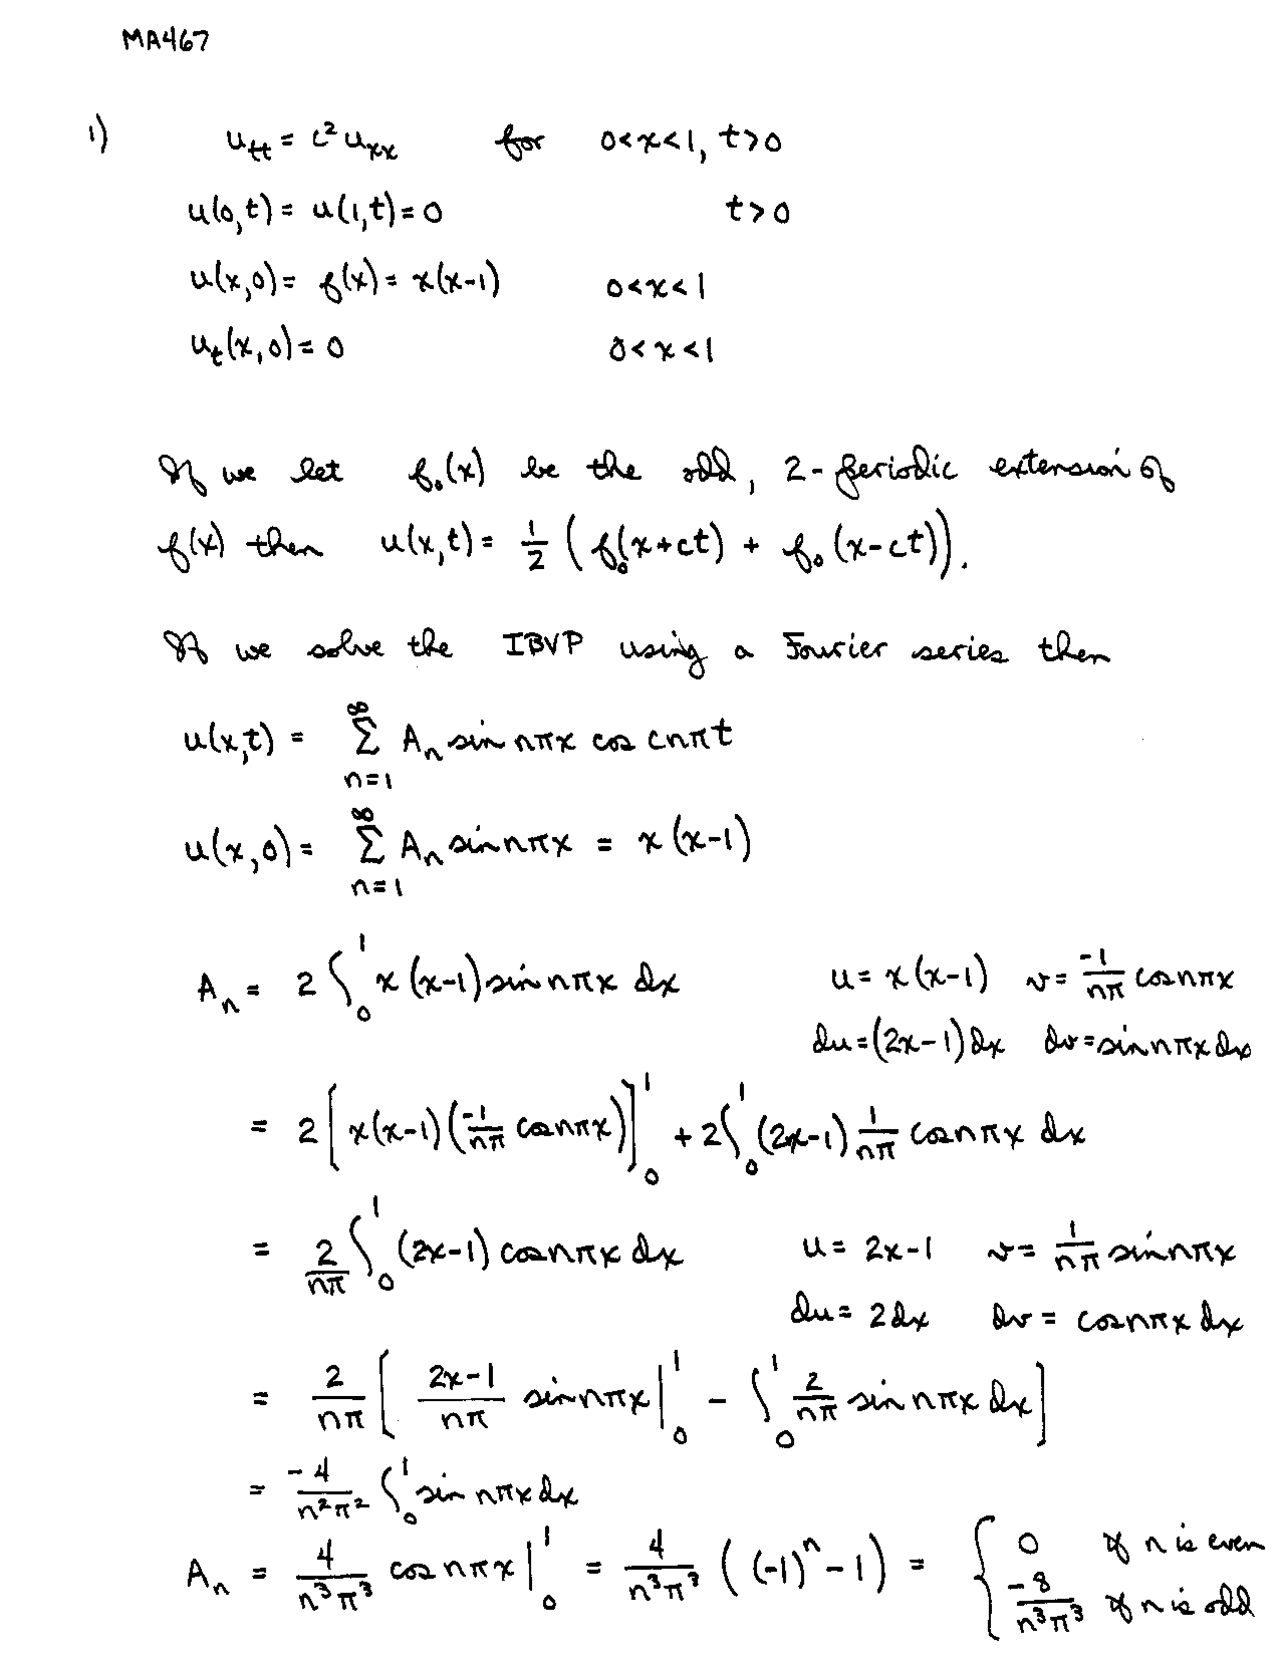 MA467
1) u_tt = c² u_xx for 0<x<1, t>0
u(0,t) = u(1,t) = 0 t>0
u(x,0) = f(x) = x(x-1) 0<x<1
u_t(x,0) = 0 0<x<1
If we let f₀(x) be the odd, 2-periodic extension of
f(x) then u(x,t) = 1/2 ( f₀(x+ct) + f₀(x-ct) ).
If we solve the IBVP using a Fourier series then
u(x,t) = ∑_{n=1}^{∞} A_n sin nπx cos cnπt
u(x,0) = ∑_{n=1}^{∞} A_n sin nπx = x(x-1)
A_n = 2 ∫_0^1 x(x-1) sin nπx dx u = x(x-1) v = -1/nπ cos nπx
du = (2x-1)dx dv = sin nπx dx
= 2 [ x(x-1) ( -1/nπ cos nπx ) ]_0^1 + 2 ∫_0^1 (2x-1) 1/nπ cos nπx dx
= 2/nπ ∫_0^1 (2x-1) cos nπx dx u = 2x-1 v = 1/nπ sin nπx
du = 2dx dv = cos nπx dx
= 2/nπ [ (2x-1)/nπ sin nπx |_0^1 - ∫_0^1 2/nπ sin nπx dx ]
= -4/n²π² ∫_0^1 sin nπx dx
A_n = 4/n³π³ cos nπx |_0^1 = 4/n³π³ ( (-1)^n - 1 ) = { 0 if n is even
-8/n³π³ if n is odd